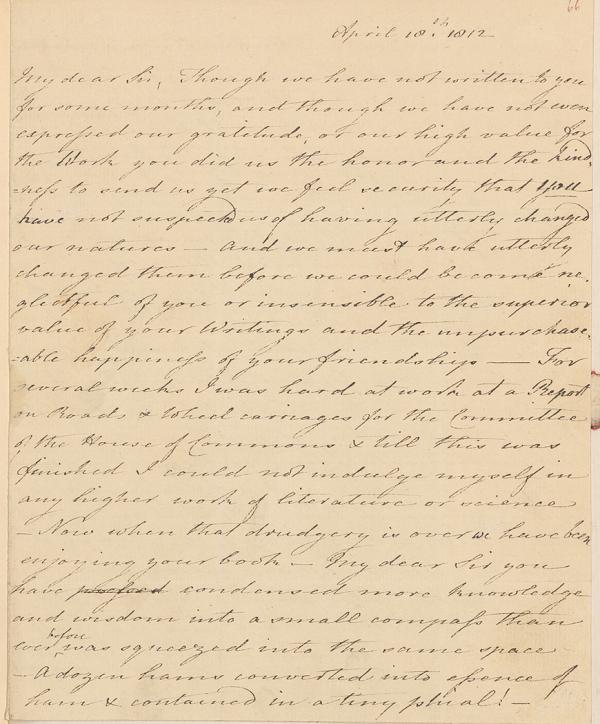 66
April 18.th 1812
My dear Sir, Though we have not written to you
for some months, and though we have not even
expressed our gratitude, or our high value for
the Work you did us the honor and the kind,
=ness to send us yet we feel security that you
have not suspected us of having utterly changed
our natures — And we must have utterly
changed them before we could become ne,
glectful of you or insensible to the superior
value of your Writings and the unpurchase,
=able happiness of your friendship — For
several weeks I was hard at work at a Report
on Roads & Wheel carriages for the Committee
of the House of Commons & till this was
finished I could not indulge myself in
any higher work of literature or science
— Now when that drudgery is over we have been
enjoying your book — My dear Sir you
have pressed condensed more knowledge
and wisdom into a small compass than
ever before was squeezed into the same space
— A dozen hams converted into essence of
ham & contained in a tiny phial! —